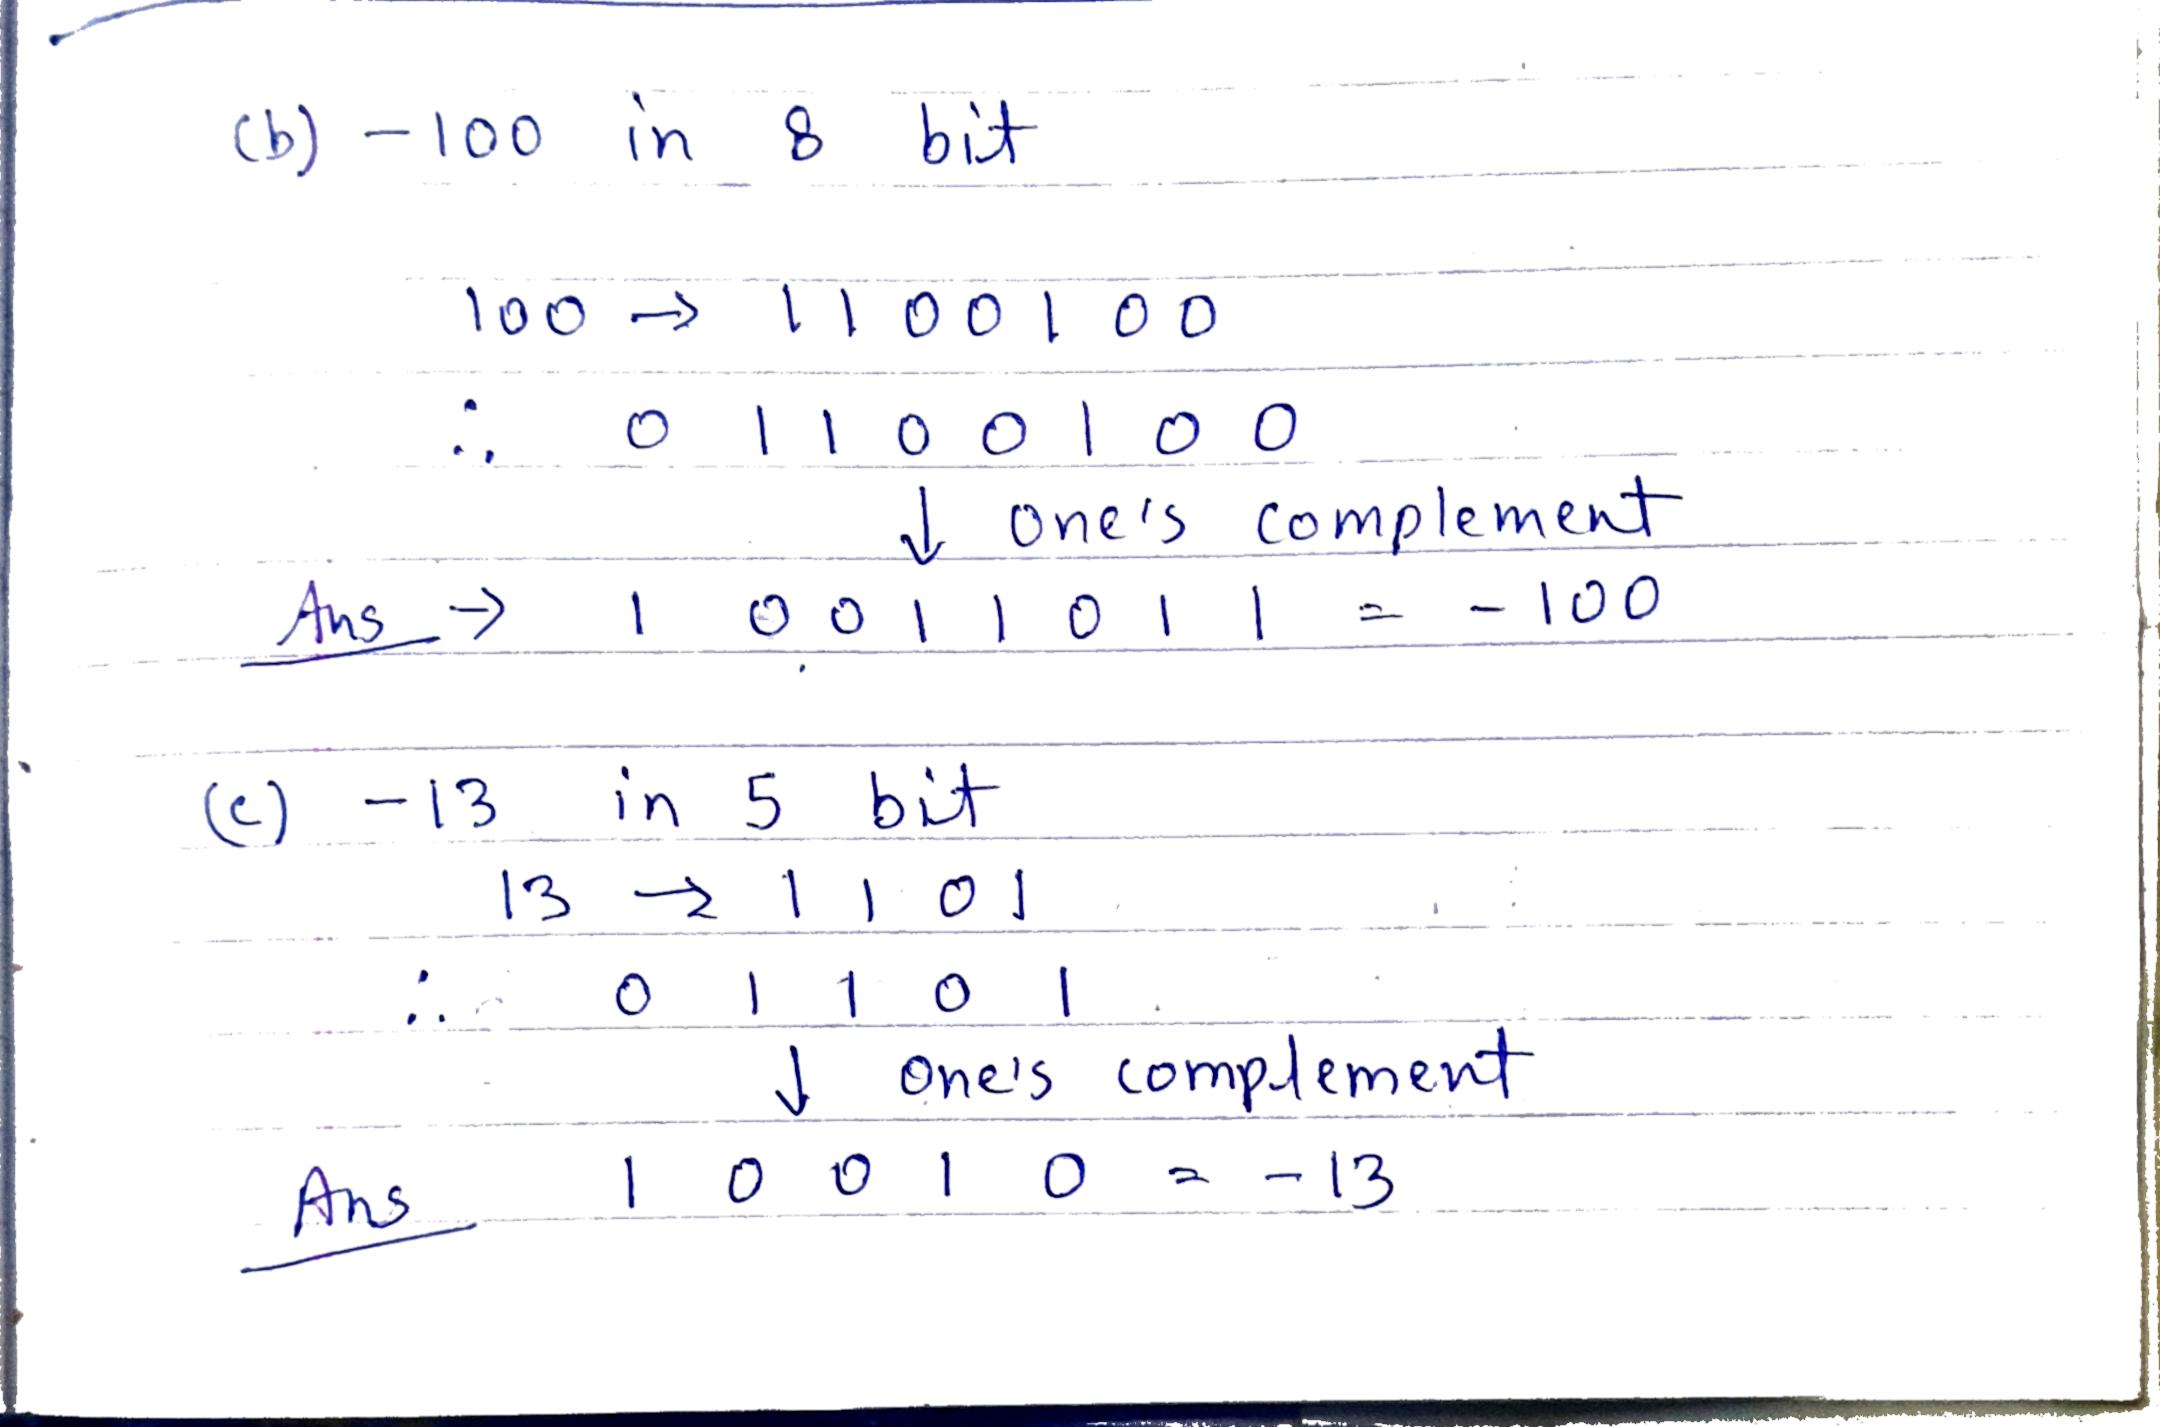 (b) -100 in 8 bit
100 → 1100100
∴ 0 1 1 0 0 1 0 0
↓ one's complement
Ans → 1 0 0 1 1 0 1 1 = -100
(c) -13 in 5 bit
13 → 1 1 0 1
∴ 0 1 1 0 1
↓ one's complement
Ans 1 0 0 1 0 = -13